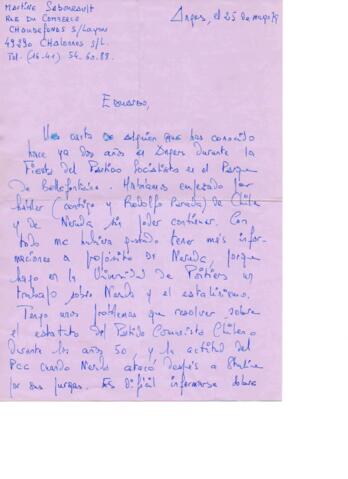 MARTINE SABOURAULT
RUE DU COMMERCE
CHAUDEFONDS S/LAYON
49290 CHALONNES S/L.
Tel. (16-41) 54.60.89.
Angers, el 25 de mayo 7
EDUARDO,
Una carta de alguien que has conocido
hace ya dos años en Angers durante la
Fiesta del Partido Socialista en el Parque
de Bellefontaine. Habíamos empezado por
hablar (contigo y Rodolfo Parada) de Chile
y de Neruda sin poder continuar. Con
todo me hubiera gustado tener más infor-
maciones a propósito de Neruda, porque
hago en la Universidad de Poitiers un
trabajo sobre Neruda y el estalinismo.
Tengo unos problemas que resolver sobre
el estatuto del Partido Comunista Chileno
durante los años 50, y la actitud del
PCC cuando Neruda atacó después a Staline
por sus purgas. Es difícil informarse sobre